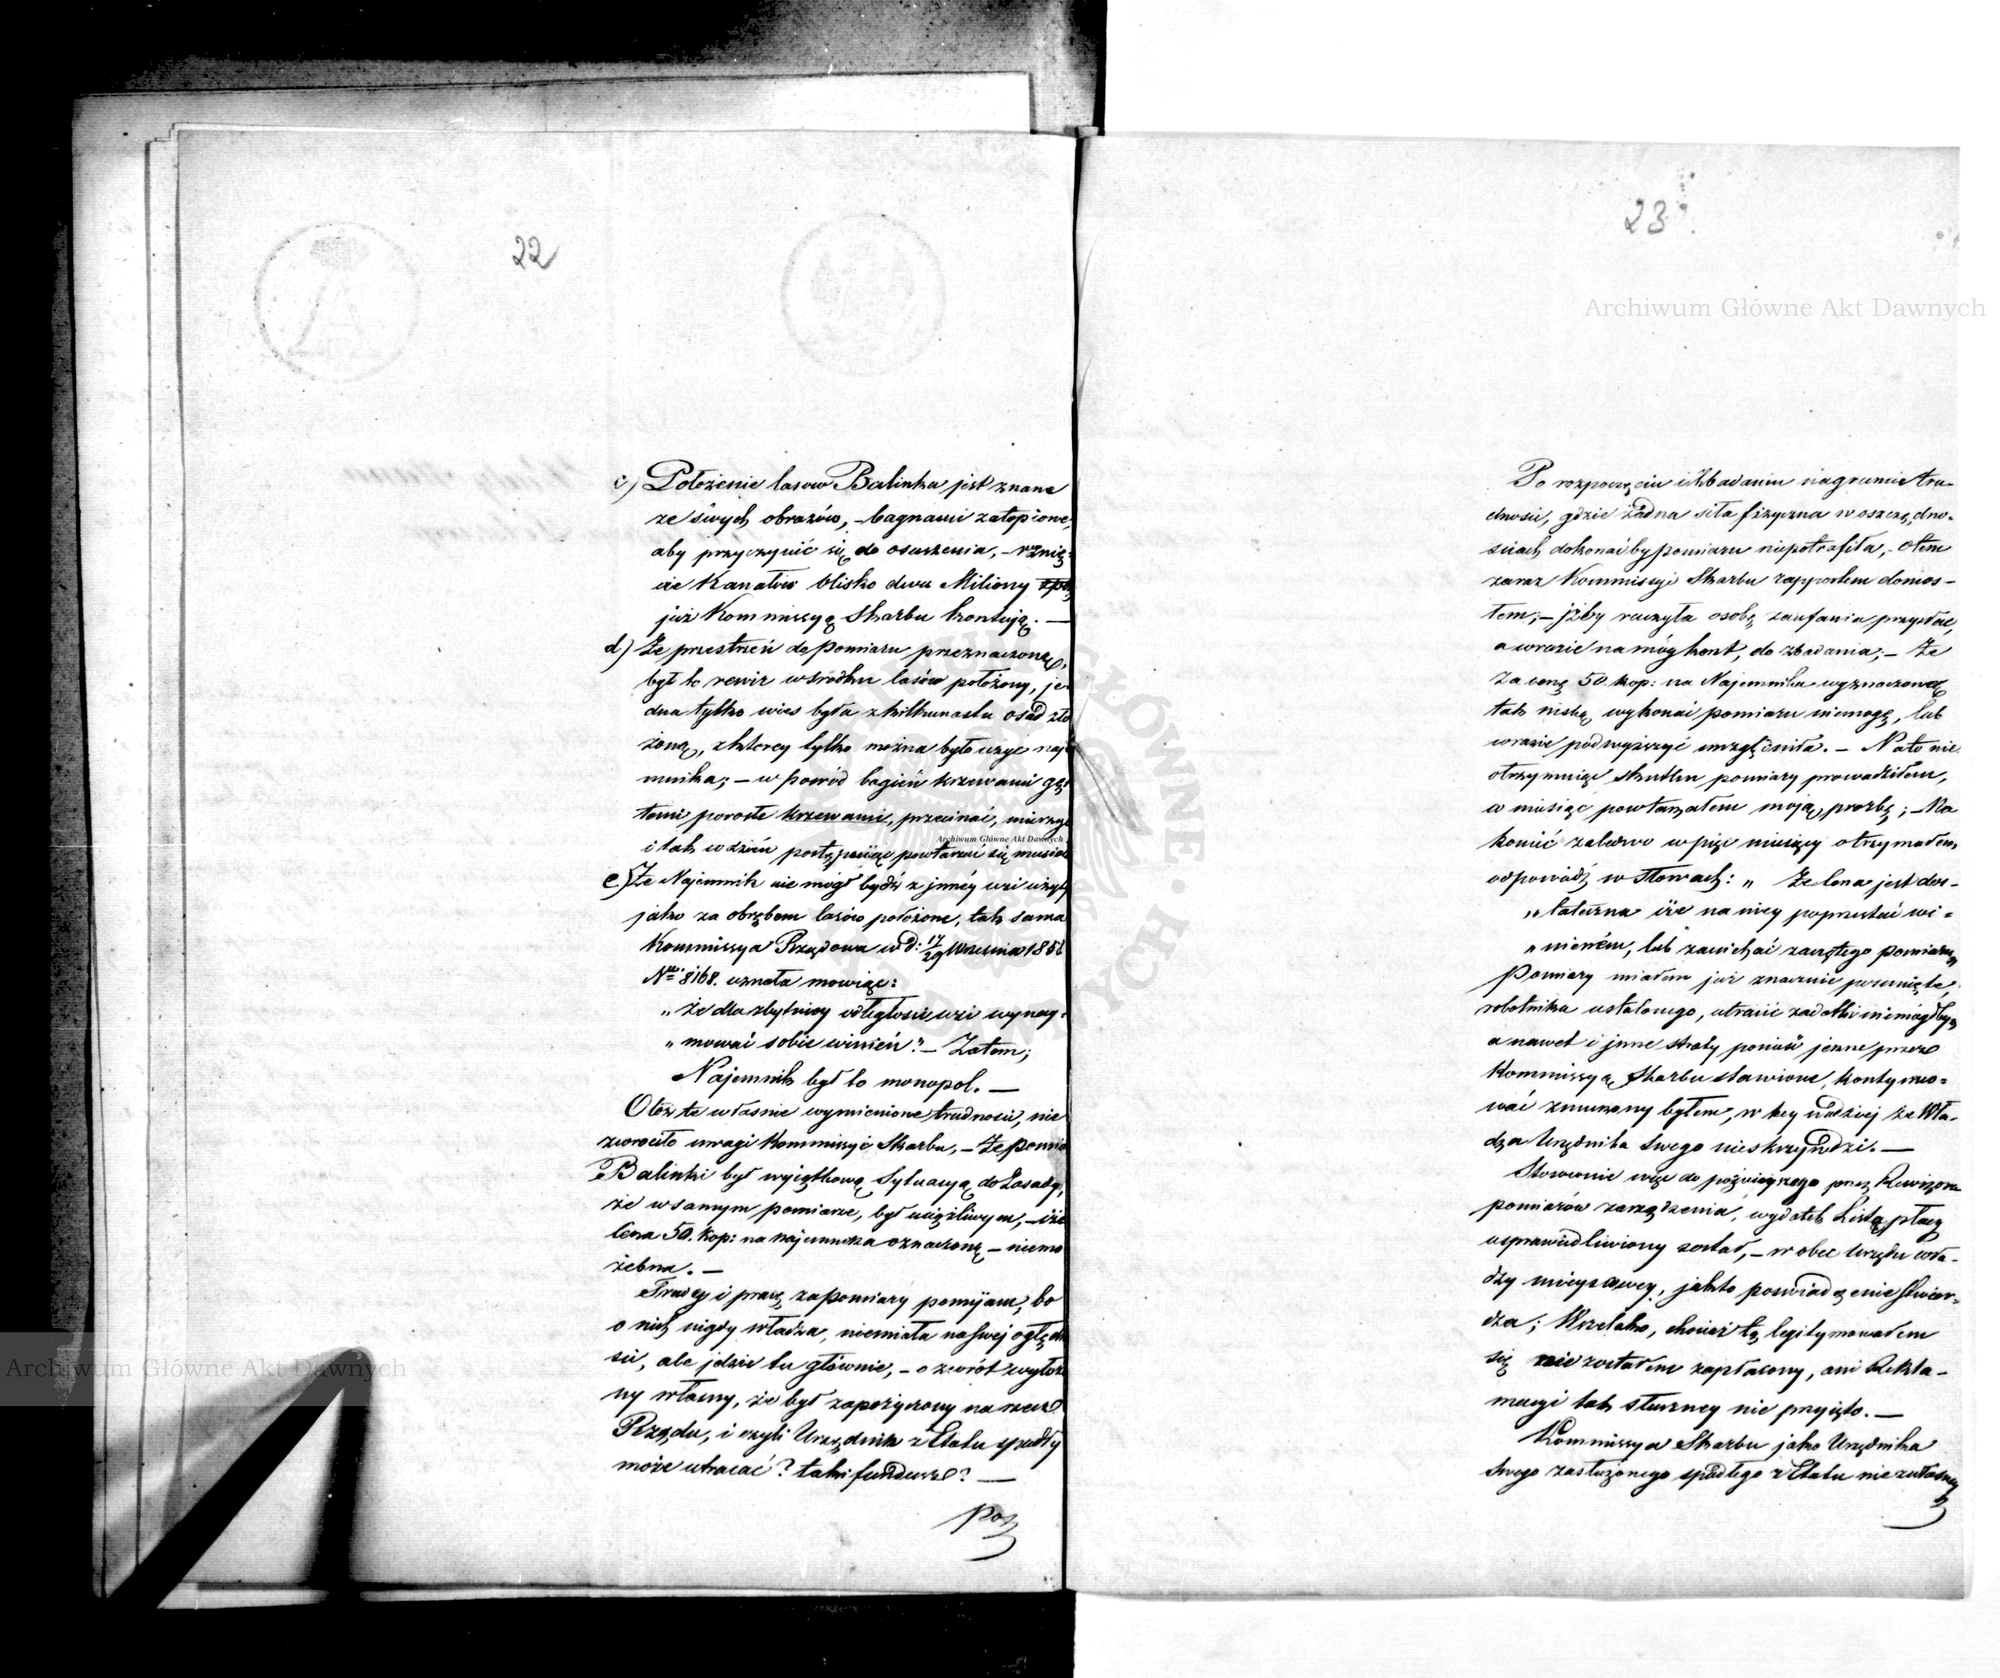 22
c) Położenie lasow Balinka jest znane
ze swych obrazów, – bagnami zatopione,
aby przyczynić się do osuszenia, – rżnię-
cie Kanałów blisko dwa Miliony
już Kommissyą Skarbu kontują. —
d) Że przestrzeń do pomiaru przeznaczoną,
był to rewir wśrodku lasów położony, je-
dna tylko wieś była z kilkunastu osad zło
żoną, z ktorey tylko można było użyć naje
mnika; – w powród bagien krzewami gęs
temi porosłe krzewami, przecinać, mierzyć
i tak w dzień postępując powtarzać się musiał
e) Że Najemnik nie mógł bydź z jnnéy wsi użyty
jako za obrębem lasów położone, tak sama
Kommissya Rządowa w d: 17/29 Września 185
Nr 8168. uznała mowiąc:
„ że dla zbytniey odległości wsi wynay-
„ mować sobie winien." – Zatem;
Najemnik był to monopol. —
Otoż te właśnie wymienione trudności, nie
zwrociło uwagi Kommissyi Skarbu, – że pomia
Balinki był wyjątkową Sytuacyą do Zasady,
że w samym pomiarze, był uciążliwym, – iże
Cena 50. kop: na najemnika oznaczoną – niemo
żebna. —
Trudy i pracę za pomiary pomijam, bo
o nich nigdy władza, niemiała na swej oglę
ści, ale jdzie tu głównie, – o zwrót zwyłoż
ny własny, że był zapożyczony na rzecz
Rządu, i czyli Urzędnik z Etatu spadły
może utracać? taki fundusz? —
Poz
23
Po rozpoczęciu i zbadaniu na gruncie tru-
dności, gdzie żadna siła fizyczna w oszczędno-
ściach dokonać by pomiaru niepotrafiła, – otem
zaraz Kommissyi Skarbu rapportem donios-
łem; – jżby raczyła osobę zaufania przysłać,
a w razie na móy koszt, do zbadania; – Że
za cenę 50. kop: na Najemnika wyznaczoną
tak niską, wykonać pomiaru niemogę, lub
w razie podwyższyć uwzględniła. – Na to nie
otrzymując skutku pomiary prowadziłem,
co miesiąc powtarzałem moją prozbę; – Na
koniec zaledwo w pięć miesięcy otrzymałem
odpowiedź w słowach: „ Że Cena jest dos-
„ tateczna iże na niey poprzestać wi-
„ nienem, lub zaniechać zaczętego pomiaru,
Pomiary miałem już znacznie posunięte,
robotnika ustalonego, utracić zadatki niemógłbym
a nawet i jnne straty ponieść jenne przez
Kommissyą Skarbu stawione, kontynuo-
wać zmuszony byłem, w tey nadziej że Wła-
dza Urzędnika Swego nieskrzywdzi. —
Stosownie więc do późniejszego przez Rewizora
pomiarów zarządzenia, wydatek Listą płacy
usprawiedliwiony został, – w obec Urzędu wła-
dzy mieyscowey, jak to poswiadczenie stwier-
dza; Wszelako, chociaż tą legitymowałem
się nie zostałem zapłacony, ani Rekla-
macyi tak słuszney nie przyjęto. —
Kommissya Skarbu jako Urzędnika
Swego zasłużonego spadłego z Etatu
Archiwum Główne Akt Dawnych
Archiwum Główne Akt Dawnych
Archiwum Główne Akt Dawnych